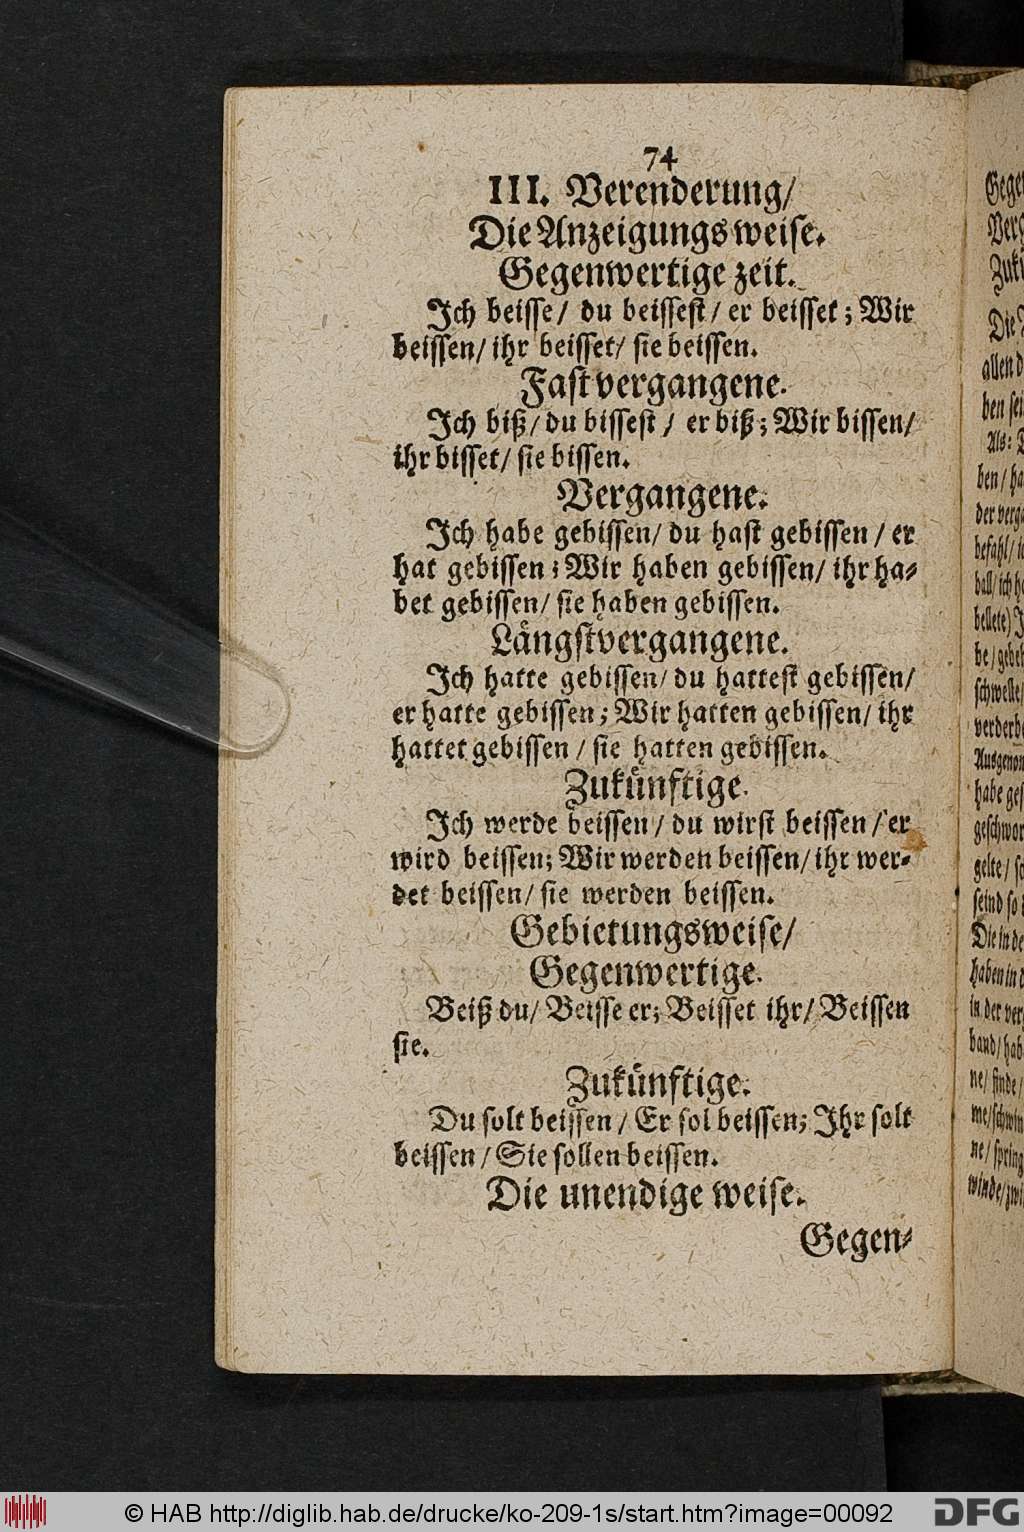 74
III. Verenderung/
Die Anzeigungsweise.
Gegenwertige zeit.
Jch beisse/ du beissest/ er beisset; Wir
beissen/ ihr beisset/ sie beissen.
Fastvergangene.
Jch biß/ du bissest/ er biß; Wir bissen/
ihr bisset/ sie bissen.
Vergangene.
Jch habe gebissen/ du hast gebissen/ er
hat gebissen; Wir haben gebissen/ ihr ha-
bet gebissen/ sie haben gebissen.
Längstvergangene.
Jch hatte gebissen/ du hattest gebissen/
er hatte gebissen; Wir hatten gebissen/ ihr
hattet gebissen/ sie hatten gebissen.
Zukünftige.
Jch werde beissen/ du wirst beissen/ er
wird beissen; Wir werden beissen/ ihr wer-
det beissen/ sie werden beissen.
Gebietungsweise/
Gegenwertige.
Beiß du/ Beisse er; Beisset ihr/ Beissen
sie.
Zukünftige.
Du solt beissen/ Er sol beissen; Jhr solt
beissen/ Sie sollen beissen.
Die unendige weise.
Gegen-
allen
ben
Als:
ben/
befahl/
ball/
bellete)
schwelle/
habe
gelte/
seind so
Die in
haben in
in der
band/
ne/ finde/
ne/
winde/
© HAB http://diglib.hab.de/drucke/ko-209-1s/start.htm?image=00092
DFG